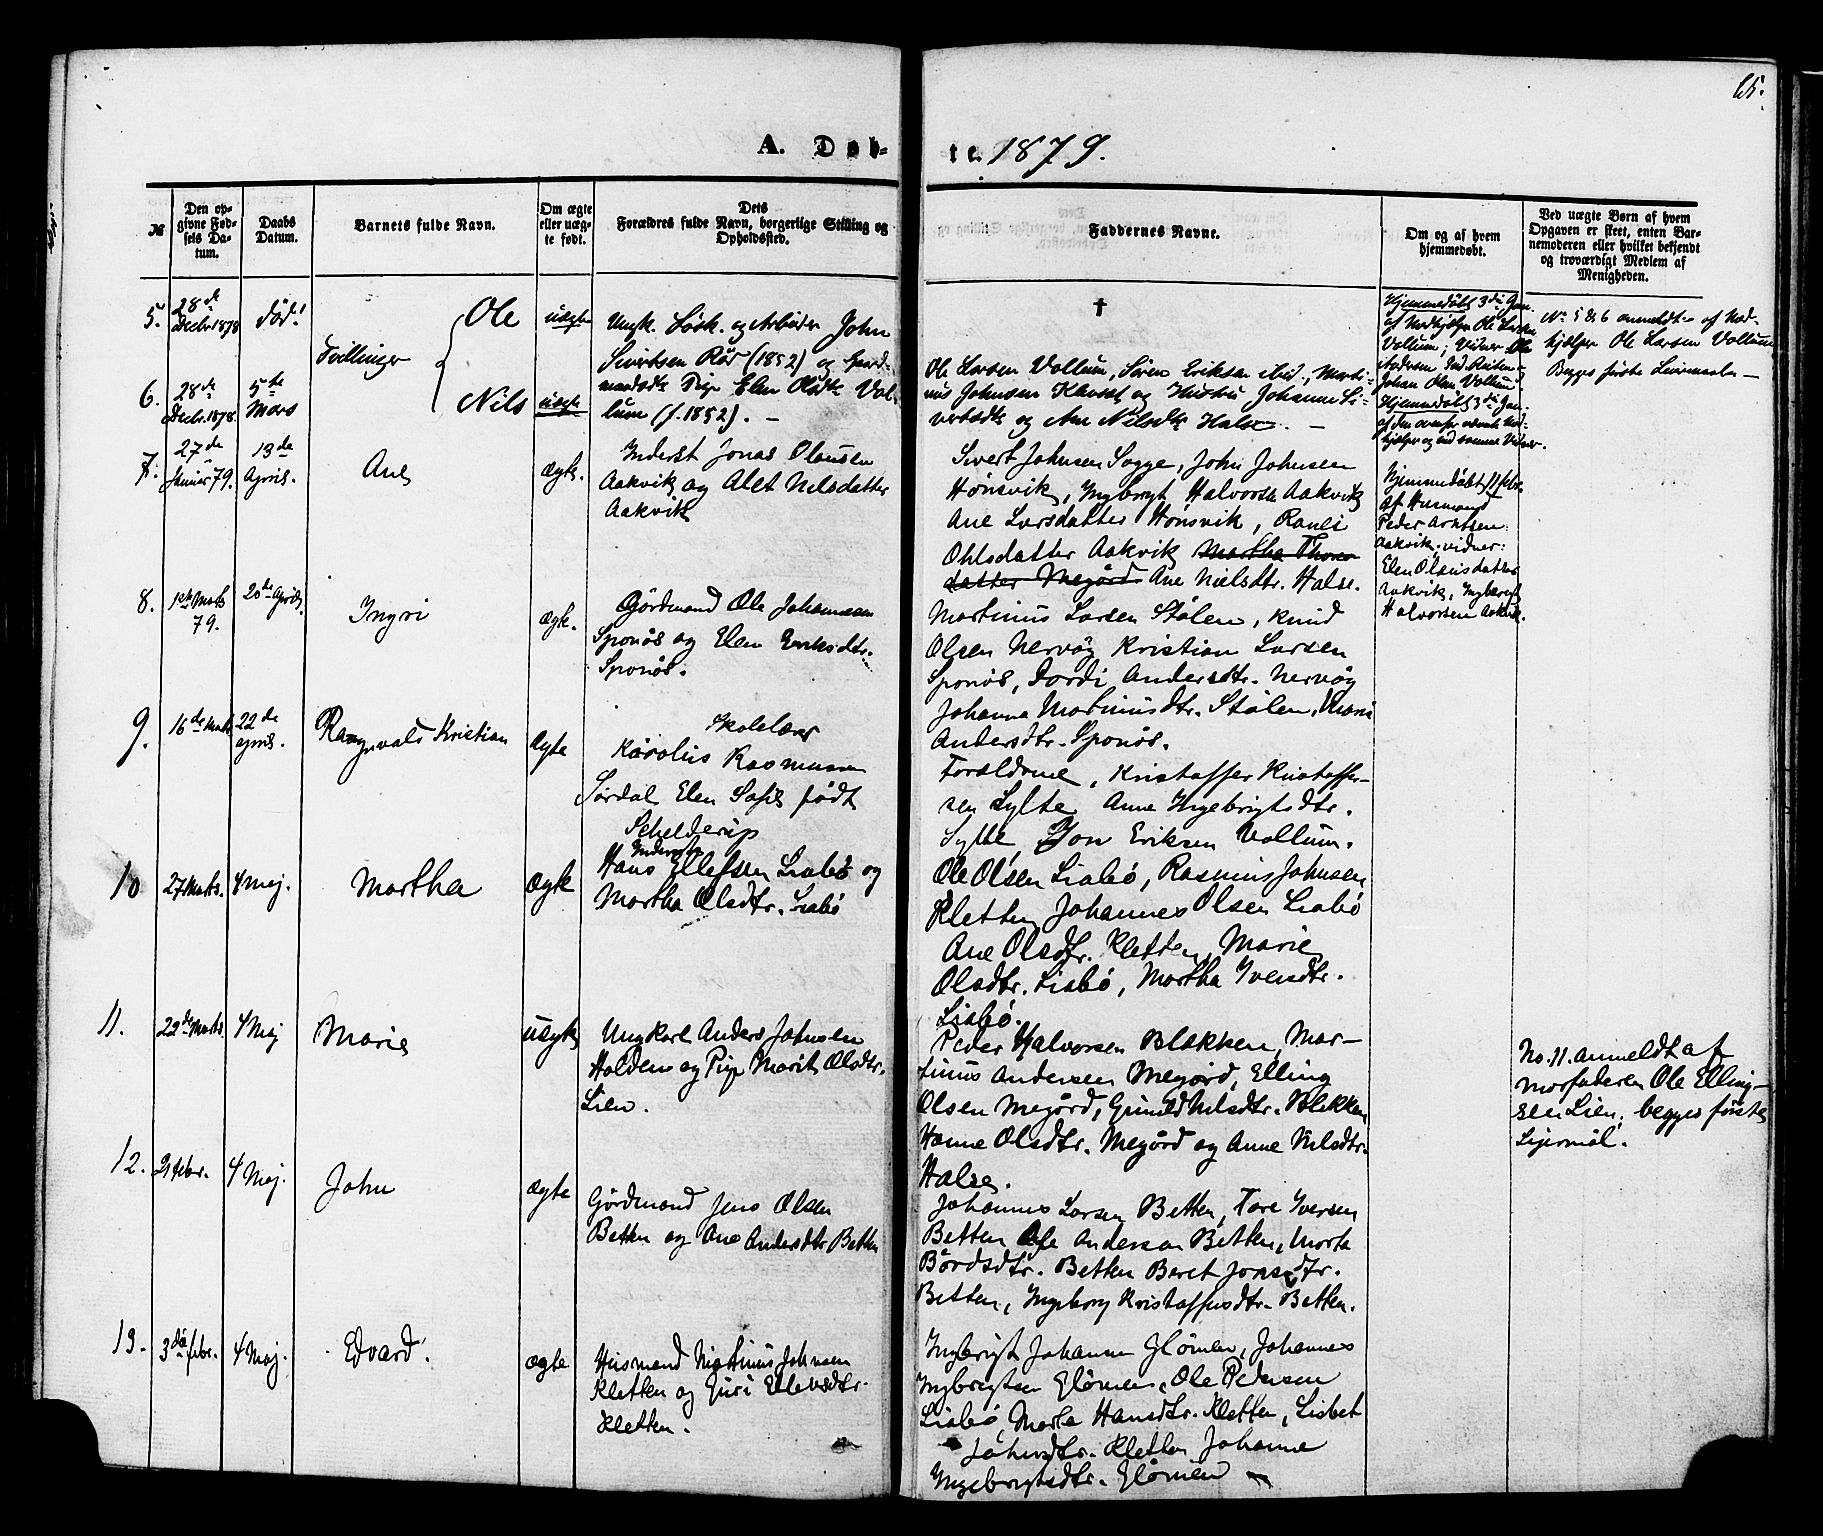 65.
A. Døb-
te. 1879.
№
Den op-
givne Fød-
sels Da-
tum.
Daabs
Datum.
Barnets fulde Navn.
Om ægte
eller uæg-
te født.
Dets
Forældres fulde Navn, borgerlige Stilling og
Opholdssted.
Faddernes Navne.
Om og af hvem
hjemmedøbt.
Ved uægte Børn af hvem
Opgaven er skeet, enten Bar-
nemoderen eller hvilket bekjendt
og troværdigt Medlem af
Menigheden.
5.
28de
Decbr. 1878
død!
Tvillinger
Ole
uægte
Ungk. Løsk. og Arbeider John
Sivertsen Rør (1852) og Gaard-
mandsdtr. Pige Elen Olsdtr. Vol-
lum (f. 1852). —
†
Hjemmedøbt 3die Jan.
af Nodhjælper Ole Larsen
Vollum; Vidner Ole
Johan Olsen Vollum
No 5 & 6 anmeldt af Nød-
hjælper Ole Larsen Vollum
Begges første Leiermaal —
6.
28de
Decbr. 1878.
5te
Mars
Nils
uægte
Ole Larsen Vollum, Sören Eriksen, Marti-
nus Johnsen Havset og Hustru Johanne Si-
vertsdtr og Ane Nilsdtr. Halse. —
Hjemmedøbt 3die Jan.
af den ovenfor nævnte Nød-
hjælper og med samme Vidner.
7.
27de
Januar 79.
13de
April.
Ane
ægte.
Inderst Jonas Olausen
Aakvik og Alet Nelsdatter
Aakvik
Sivert Johnsen Sogge, John Johnsen
Hönsvik, Ingbrygt Halvorsen Aakvik
Ane Larsdatter Hönsvik, Ranei
Ohlsdatter Aakvik Martha Thore
datter Megård Ane Nielsdtr. Halse.
Hjemmedöbt 11 febr.
af Husmand
Peder Arntsen
Aakvik; vidner:
Elen Olausdatter
Aakvik, Ingbrigt
Halvorsen Aakvik.
8.
1ste Marts
79.
20de April.
Ingri
ægte.
Gårdmand Ole Johannesen
Sponås og Elen Eriksdtr.
Sponås.
Martinus Larsen Stålen, Knud
Olsen Nervåg Kristian Larsen
Sponås, Dordi Andersdtr. Nervåg
Johanna Martinusdtr. Stålen, Marie
Andersdtr. Sponås.
9.
16de Marts
22de
April.
Ragnvald Kristian
Ægte
Skolelærer
Karolus Rasmusen
Sördal Elen Sofie födt
Schelderup
Forældrene, Kristaffer Kristaffer-
sen Sylte Anne Ingebrigtsdtr.
Sylte, Jon Eriksen Vollum.
10
27 Marts.
4 Maj.
Martha
Ægte
Inderst
Hans Ellefsen Liabö og
Martha Olsdtr. Liabö
Ole Olsen Liabö, Rasmus Johnsen
Kletten Johannes Olsen Liabö
Ane Olsdtr. Kletten, Marie
Olsdtr. Liabö, Martha Iversdtr.
Liabö.
11.
22de Marts.
4 Maj
Marie
uægte
Ungkarl Anders Johnsen
Halden og Pige Marit Olsdtr.
Lien.
Peder Halvorsen Blekken, Mar-
tinus Andersen Megård, Elling
Olsen Megård, Gunild Nilsdtr. Blekken
Hanne Olsdtr. Megård og Anne Nilsdtr.
Halse.
No. 11. anmeldt af
Morfaderen Ole Elling-
sen Lien; begges förste
Lejermål.
12.
21 febr.
4 Maj.
John
ægte
Gårdmand Jens Olsen
Betten og Ane Andersdtr Betten
Johannes Larsen Betten, Tore Iversen
Betten Ole Anderson Betten, Marta
Bårdsdtr. Betten Beret Jonsdtr.
Betten, Ingeborg Kristaffersdtr. Betten.
13.
3die febr.
4 Maj.
Edvard.
ægte
Husmand Martinus Johnsen
Kletten og Guri Ellevsdtr.
Kletten.
Ingbrigt Johansen Glåmen, Johannes
Ingbrigtsen Glåmen, Ole Pedersen
Liabö, Marta Hansdtr. Kletten, Lisbet
Johnsdtr. Kletten Johanne
Ingebrigtsdtr. Glåmen